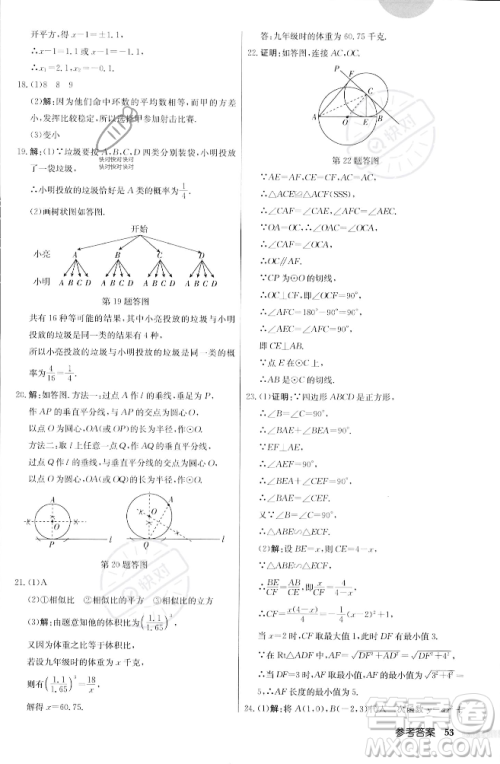 开平方，得 x－1＝±1.1，
∴x－1＝1.1 或 x－1＝－1.1，
∴x₁＝2.1，x₂＝－0.1.
18.(1)8　8　9
(2)解：因为他们命中环数的平均数相等，而甲的方差小，发挥比较稳定，所以教练选择甲参加射击比赛.
(3)变小
19.解：(1)∵垃圾要按 A、B、C、D 四类分别装袋，小明投放了一袋垃圾，
∴小明投放的垃圾恰好是 A 类的概率是 1/4.
(2)画树状图如答图.
开始
小亮 A B C D
小明 A B C D A B C D A B C D A B C D
第 19 题答图
共有 16 种等可能的结果，其中小亮投放的垃圾与小明投放的垃圾是同一类的结果有 4 种，
所以小亮投放的垃圾与小明投放的垃圾是同一类的概率为 4/16＝1/4.
20.解：如答图. 方法一：过点 A 作 l 的垂线，垂足为 P，作 AP 的垂直平分线，交 AP 的交点为圆心 O，以点 O 为圆心，OA(或 OP)为半径，作⊙O.
方法二：在 l 上任意一点 Q，过点 Q 作 l 的垂线，作 AQ 的垂直平分线，与垂线的交点为圆心 O，以点 O 为圆心，OA(或 OQ)为半径，作⊙O.
A
O
P l
A
O
Q l
第 20 题答图
21.(1)A
(2)①相似比　②相似比的平方　③相似比的立方
(3)解：由题意知他的体积比为(1.1/1.65)³，
又因为体重之比等于体积比，
若设九年级时的体重为 x 千克，
则有(1.1/1.65)³＝18/x，
解得 x＝60.75.
答：九年级时的体重为 60.75 千克.
22.证明：如答图，连接 AC，OC.
P F C A O E B
第 22 题答图
∵AE＝AF，CE＝CF，AC＝AC，
∴△CAF≌△CAE(SSS)，
∴∠CAF＝∠CAE.
∵OA＝OC，
∴∠CAE＝∠OCA，
∴∠CAF＝∠OCA，
∴OC∥AF.
∵CP 为⊙O 的切线，
∴∠OCF＝90°，
∴∠AFC＝180°－90°＝90°，
∴∠AEC＝∠AFC＝90°，
∴CE⊥AB.
23.(1)证明：∵四边形 ABCD 是正方形，
∴∠B＝∠C＝90°，
∴∠BAE＋∠AEB＝90°.
∵EF⊥AE，
∴∠AEF＝90°，
∴∠AEB＋∠CEF＝90°，
∴∠BAE＝∠CEF，
∴△ABE∽△ECF.
(2)解：设 BE＝x，则 CE＝4－x.
∵△ABE∽△ECF，
∴BE/CF＝AB/EC，即 x/CF＝4/(4－x)，
∴CF＝x(4－x)/4＝－1/4(x－2)²＋1.
当 x＝2 时，CF 有最大值 1，
此时 DF 有最小值 3.
∵在 Rt△ADF 中，AF＝√(DF²＋AD²)＝√(DF²＋4²)，
∴此时 AF 最小，最小值为 5.
24.(1)解：将 A(1，0)，B(－2，3)
参考答案　53
快对